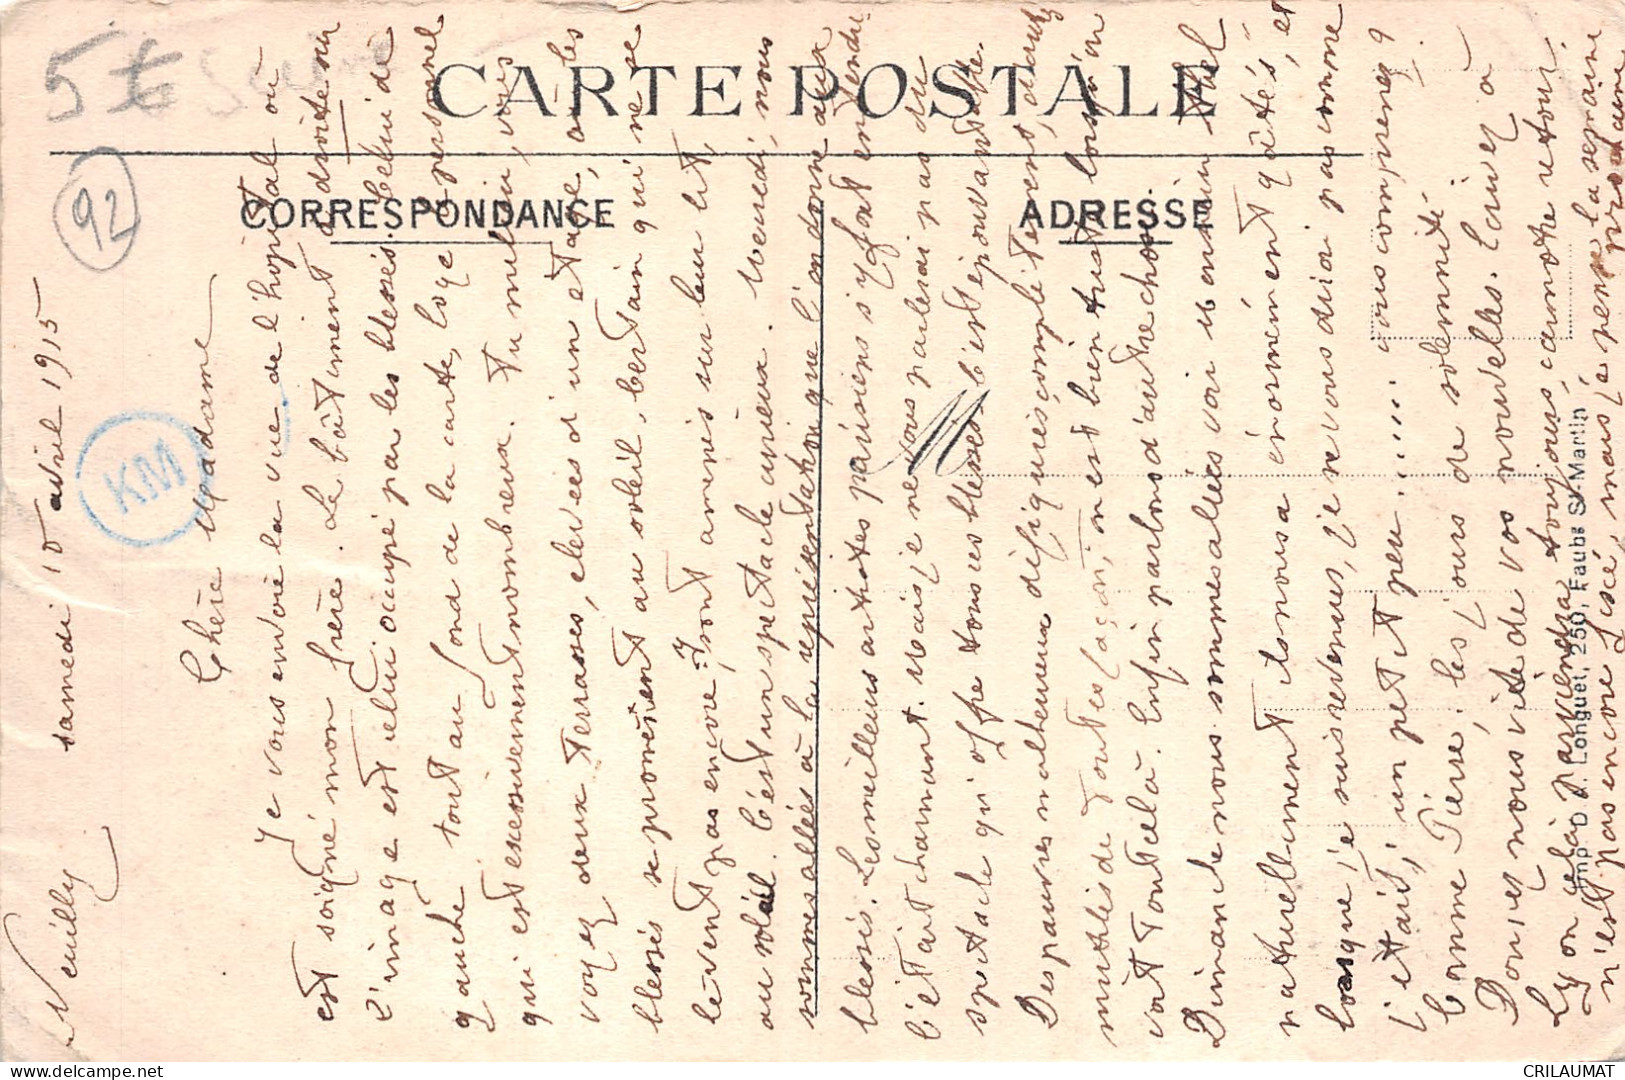 5 €
92
CARTE POSTALE
CORRESPONDANCE
ADRESSE
M
KM
Imp. D. A. Longuet, 250, Faubg St-Martin
Neuilly samedi 10 avril 1915
Chère Madame
Je vous envoie la vue de l'hôpital où
est soigné mon frère. Le bâtiment à droite sur
l'image est celui occupé par les blessés. Celui de
gauche tout au fond de la carte, loge personnel
qui est excessivement nombreux. Au milieu, vous
voyez deux terrasses, élevées d'un étage, où les
blessés se promènent au soleil, certain qui ne se
lèvent pas encore, sont amenés sur leur lit,
au soleil. C'est un spectacle curieux. Mercredi, nous
sommes allées à la représentation que l'on donne aux
blessés. Les meilleurs artistes parisiens s'y font entendre
c'était charmant. Mais je ne vous parlerai pas du
spectacle qu'offre tous ces blessés c'est épouvantable.
Des pauvres malheureux défigurés complètement, d'autres
mutilés de toutes façon, on est bien triste lorsqu'on
voit tout cela. Enfin parlons d'autre chose.
Dimanche nous sommes allées voir cousin Abel
naturellement ils nous a énormément gâtés, et
lorsque je suis revenus, je ne vous dirai pas comme
j'étais, un petit peu....... vous comprenez ?
comme Pierre, les jours de solennité.
Donnez nous vite de vos nouvelles. Écrivez à
Lyon cela parviendra toujours, car notre retour
n'est pas encore fixé, mais je pense la semaine
prochaine